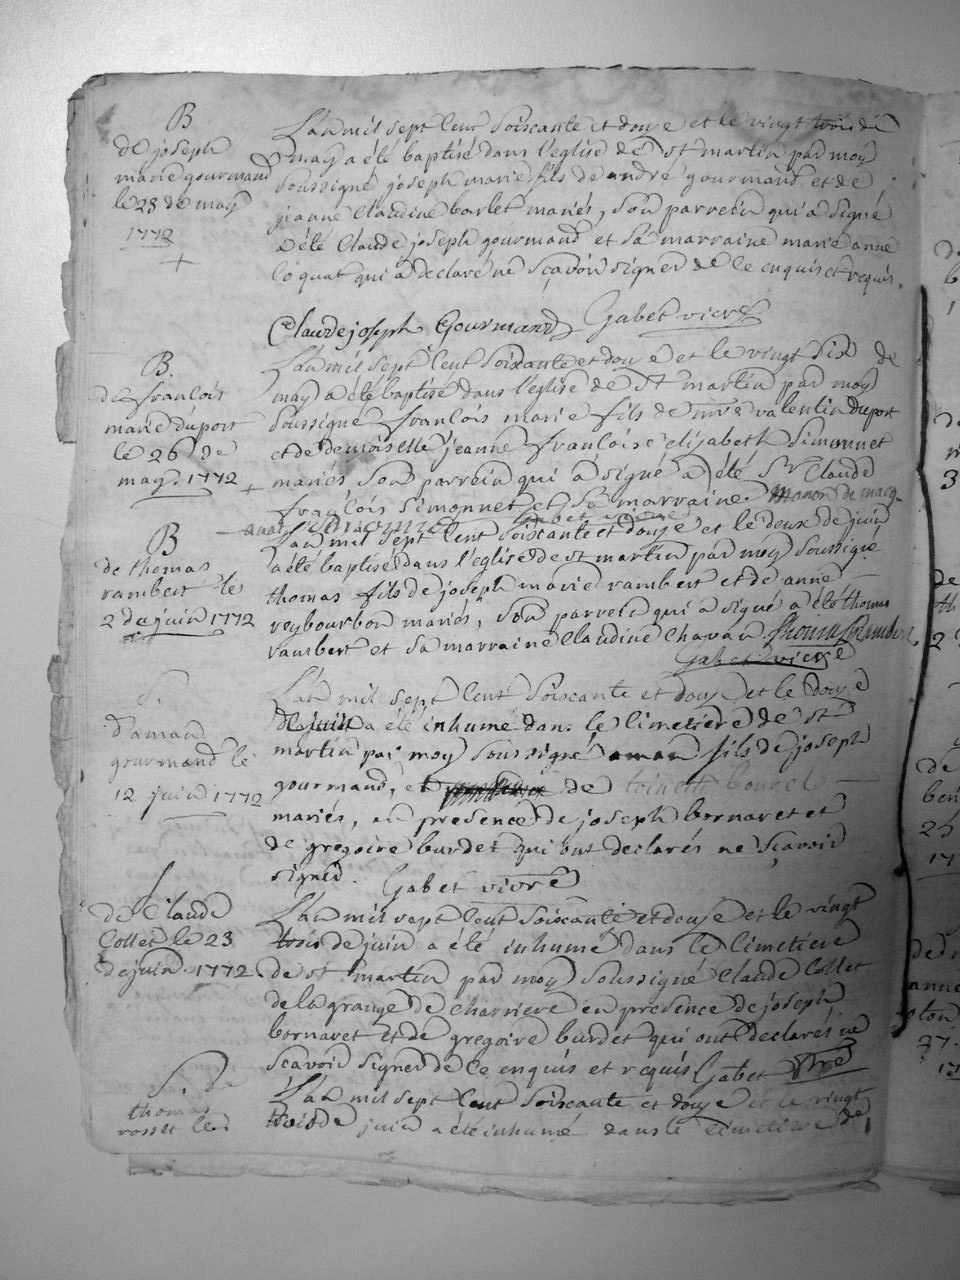 B
de joseph
marie gourmand
le 23 de may
1772
L'an mil sept cent soiscante et douze et le vingt trois de
may a été baptisé dans l'église de st martin par moy
soussigné joseph marie fils de andré gourmand et de
jeanne claudine barlet mariés, son parrein qui a signé
a été claude joseph gourmand et sa marraine marie anne
coquat qui a declaré ne sçavoir signer de ce enquis et requis.
Claude joseph Gourmand Gabet vicre
B.
de francois
marie duport
le 26 de
may 1772
L'an mil sept cent soixante et douze et le vingt six de
may a été baptisé dans l'église de st martin par moy
soussigné francois marie fils de valentin duport
et de demoiselle jeanne francoise elizabeth simonnet
mariés son parrein qui a signé a été sr claude
francois simonnet et sa marraine manon de
gabet vicre
B
de thomas
rambert le
2 de juin 1772
L'an mil sept cent soiscante et douze et le deux de juin
a été baptisé dans l'église de st martin par moy soussigné
thomas fils de joseph marie rambert et de anne
reybourbon mariés, son parrein qui a signé a été thomas
rambert et sa marraine claudine chavan Thomas Rambert
Gabet vicre
S.
d'aman
gourmand le
12 juin 1772
L'an mil sept cent soiscante et douze et le douze
de juin a été inhumé dans le cimetiere de st
martin par moy soussigné aman fils de joseph
gourmand, et de
mariés, en presence de joseph bornaret et
de gregoire burdet qui ont declarés ne sçavoir
signer. Gabet vicre
S
de claude
Collet le 23
de juin 1772
L'an mil sept cent soiscante et douze et le vingt
trois de juin a été inhumé dans le cimetiere
de st martin par moy soussigné claude Collet
de la grange de charriere en presence de joseph
bornaret et de gregoire burdet qui ont declarés ne
scavoir signer de ce enquis et requis Gabet vicre
S. de
thomas
rosset le
L'an mil sept cent soiscante et douze et le vingt
trois de juin a été inhumé dans le cimetiere de